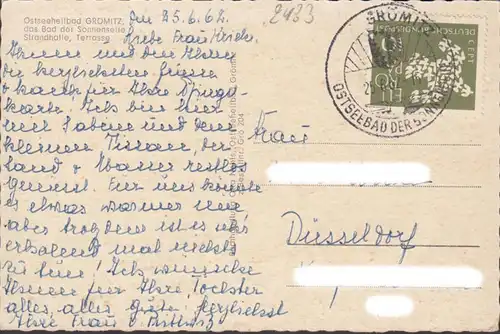 Ostseeheilbad GRÖMITZ,
das Bad der Sonnenseite
Strandhalle, Terrasse
2433
den 25.6.62.
Liebe Frau
Ihnen und den Ihren
die herzlichsten Grüsse
Dank für Ihre Pfingst-
karte! Ich bin hier
mit Sabine und dem
kleinen Tristan, der
Sand & Wasser restlos
genießt. Für uns könnte
es etwas wärmer sein
aber trotzdem ist es sehr
erholsam mal nichts
zu tun! Ich wünsche
Ihnen für Ihre Tochter
alles, alles Gute. Herzlichst
Ihre Frau v.
Gro 204
GRÖMITZ
OSTSEEBAD DER SONNENSEITE
DEUTSCHE BUNDESPOST
CEPT
10
EUROPA
Frau
Düsseldorf